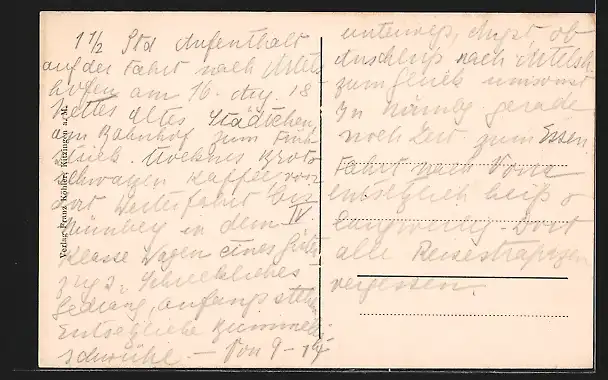 1 1/2 Std Aufenthalt
auf der Fahrt nach Artels-
hofen am 16. Aug. 18
Nettes altes Städtchen,
am Bahnhof zum Früh-
stück trockenes Brot
schwarzen Kaffee, von
dort Weiterfahrt bis
Nürnberg in dem IV
Klasse Wagen eines Güter-
zugs. Schreckliches
Gedräng, anfangs stehen
Entsetzliche Bummelei
schwüle. — Von 9 -
unterwegs, Angst, ob
Anschluß nach Artelsh.
zum Glück umsonst
In Nürnbg. gerade
noch Zeit zum Essen.
Fahrt nach Vorra
entsetzlich heiß &
langweilig - Dort
alle Reisestrapazen
vergessen.
Verlag Franz Köhler, Kitzingen a. M.